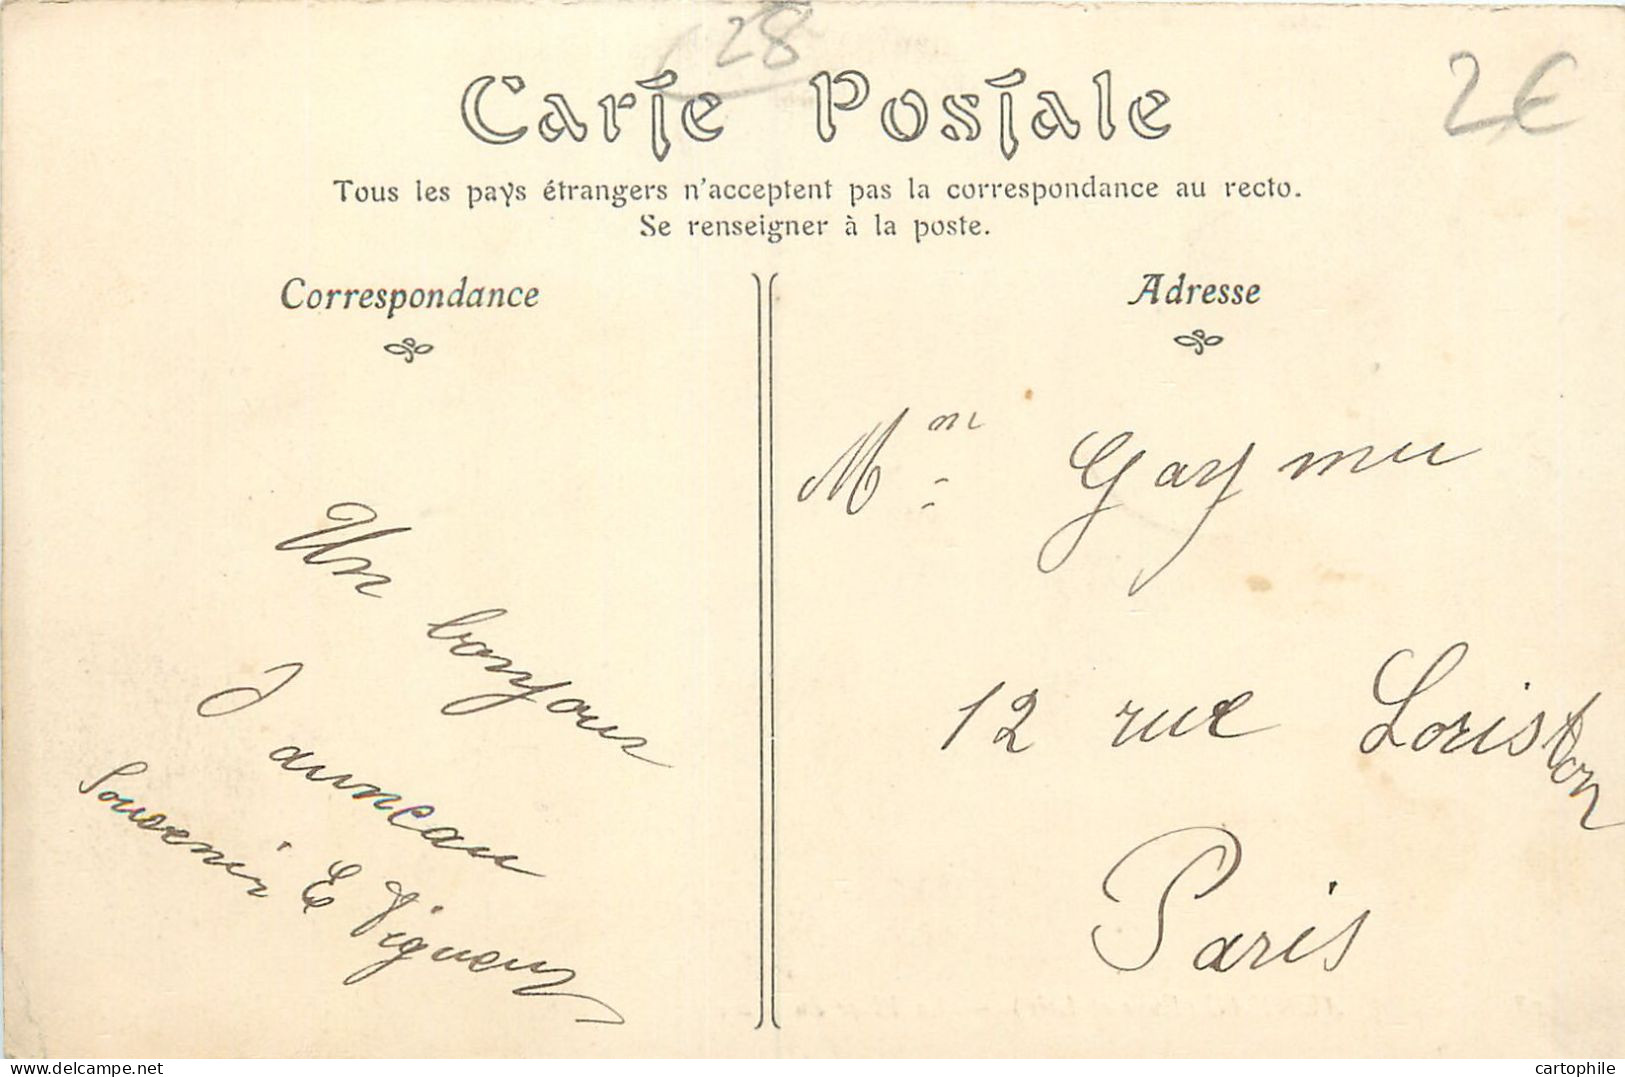 28
2€
Carte Postale
Tous les pays étrangers n'acceptent pas la correspondance au recto.
Se renseigner à la poste.
Correspondance
Un bonjour
d auneau
Souvenir E Vigneur
Adresse
Mm Gaymu
12 rue Loriston
Paris
www.delcampe.net
cartophile